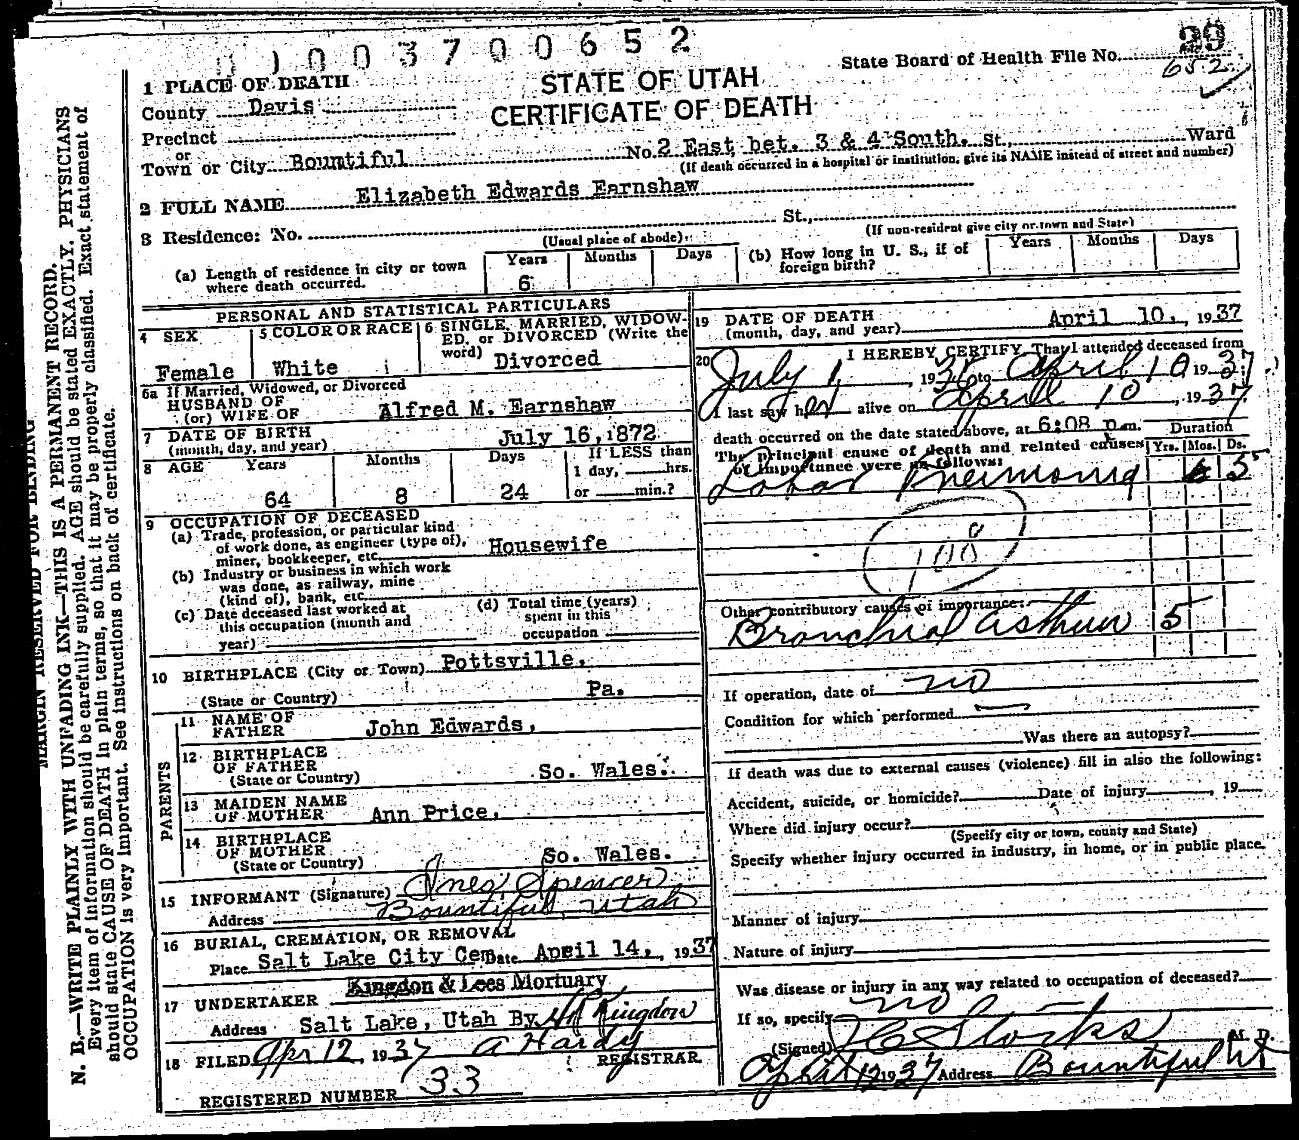 003700652
29
State Board of Health File No.
652
STATE OF UTAH
CERTIFICATE OF DEATH
1 PLACE OF DEATH
County Davis
Precinct
or
Town or City Bountiful No. 2 East, bet. 3 & 4 South. St., Ward
(If death occurred in a hospital or institution, give its NAME instead of street and number)
2 FULL NAME Elizabeth Edwards Earnshaw
3 Residence: No. St.,
(Usual place of abode) (If non-resident give city or town and State)
(a) Length of residence in city or town where death occurred. Years 6 Months Days
(b) How long in U. S., if of foreign birth? Years Months Days
PERSONAL AND STATISTICAL PARTICULARS
4 SEX Female
5 COLOR OR RACE White
6 SINGLE, MARRIED, WIDOW-
ED, or DIVORCED (Write the
word) Divorced
6a If Married, Widowed, or Divorced
HUSBAND OF
(or) WIFE OF Alfred M. Earnshaw
7 DATE OF BIRTH
(month, day, and year) July 16, 1872
8 AGE Years Months Days If LESS than
1 day, hrs.
64 8 24 or min.?
9 OCCUPATION OF DECEASED
(a) Trade, profession, or particular kind
of work done, as engineer (type of),
miner, bookkeeper, etc. Housewife
(b) Industry or business in which work
was done, as railway, mine
(kind of), bank, etc.
(c) Date deceased last worked at
this occupation (month and
year)
(d) Total time (years)
spent in this
occupation
10 BIRTHPLACE (City or Town) Pottsville,
(State or Country) Pa.
PARENTS
11 NAME OF
FATHER John Edwards,
12 BIRTHPLACE
OF FATHER
(State or Country) So. Wales.
13 MAIDEN NAME
OF MOTHER Ann Price,
14 BIRTHPLACE
OF MOTHER
(State or Country) So. Wales.
15 INFORMANT (Signature) Ines Spencer
Address Bountiful, Utah
16 BURIAL, CREMATION, OR REMOVAL
Place Salt Lake City Cem Date April 14, 1937
17 UNDERTAKER Kingdon & Lees Mortuary
Address Salt Lake, Utah By Kingdon
18 FILED Apr 12 1937 A Hardy REGISTRAR
REGISTERED NUMBER 33
19 DATE OF DEATH
(month, day, and year) April 10, 1937
20 I HEREBY CERTIFY, That I attended deceased from
July 1, 19 to April 10 1937
I last saw her alive on April 10, 1937
death occurred on the date stated above, at 6:08 p.m. Duration
The principal cause of death and related causes
of importance were as follows: Yrs. Mos. Ds.
Lobar Pneumonia 5
108
Other contributory causes of importance:
Bronchial asthma 5
If operation, date of no
Condition for which performed
Was there an autopsy?
If death was due to external causes (violence) fill in also the following:
Accident, suicide, or homicide? Date of injury , 19
Where did injury occur?
(Specify city or town, county and State)
Specify whether injury occurred in industry, in home, or in public place.
Manner of injury
Nature of injury
Was disease or injury in any way related to occupation of deceased?
If so, specify no
(Signed) Stocks M. D.
April 12 1937 Address Bountiful Ut
MARGIN RESERVED FOR BINDING
N. B.—WRITE PLAINLY WITH UNFADING INK—THIS IS A PERMANENT RECORD.
Every item of information should be carefully supplied. AGE should be stated EXACTLY. PHYSICIANS
should state CAUSE OF DEATH in plain terms, so that it may be properly classified. Exact statement of
OCCUPATION is very important. See instructions on back of certificate.